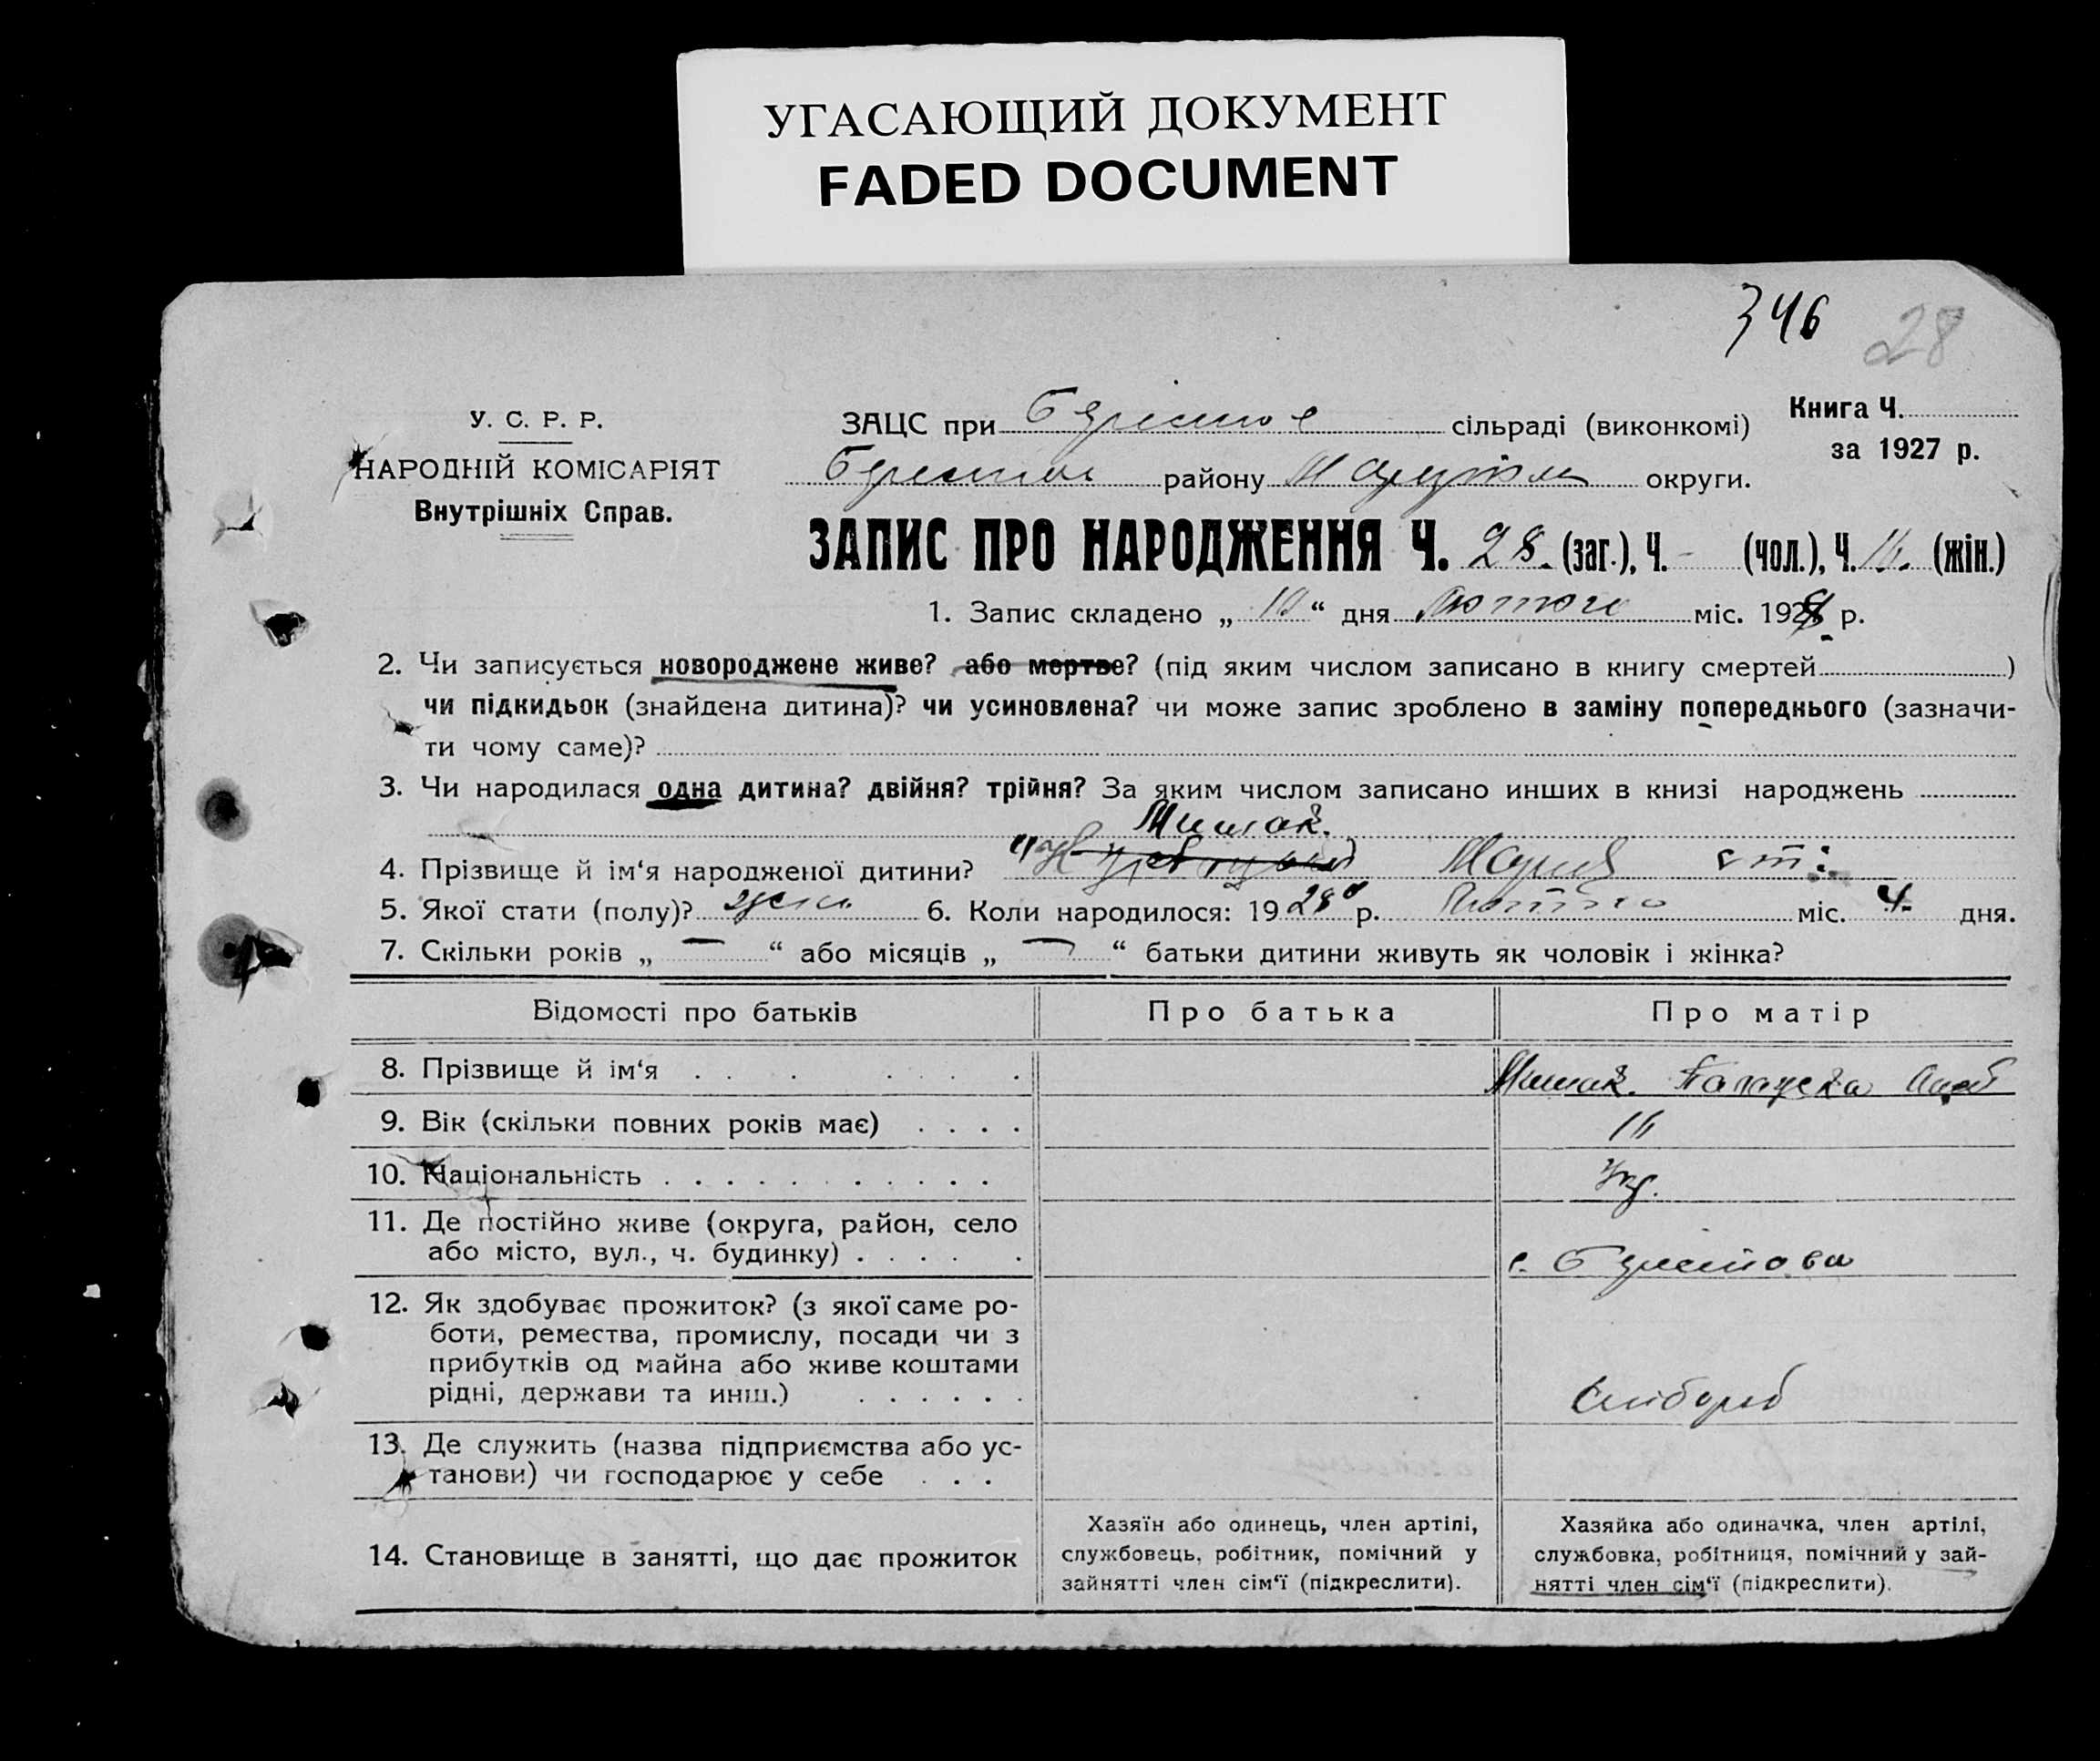 УГАСАЮЩИЙ ДОКУМЕНТ
FADED DOCUMENT
346 28
У. С. Р. Р.
НАРОДНІЙ КОМІСАРІЯТ
Внутрішніх Справ.
ЗАЦС при сільраді (виконкомі)
району округи.
Книга Ч.
за 1927 р.
ЗАПИС ПРО НАРОДЖЕННЯ Ч. 28. (заг.), Ч. - (чол.), Ч. 16. (жін.)
1. Запис складено „ 10 “ дня Лютого міс. 1928 р.
2. Чи записується новороджене живе? або мертве? (під яким числом записано в книгу смертей )
чи підкидьок (знайдена дитина)? чи усиновлена? чи може запис зроблено в заміну попереднього (зазначи-
ти чому саме)?
3. Чи народилася одна дитина? двійня? трійня? За яким числом записано инших в книзі народжень
Мишак.
4. Прізвище й ім‘я народженої дитини? Мария
5. Якої стати (полу)? жін. 6. Коли народилося: 1928 р. Лютого міс. 4. дня.
7. Скільки років „ — “ або місяців „ — “ батьки дитини живуть як чоловік і жінка?
Відомості про батьків Про батька Про матір
8. Прізвище й ім‘я Мишак. Палажка
9. Вік (скільки повних років має) 16
10. Національність Укр.
11. Де постійно живе (округа, район, село
або місто, вул., ч. будинку) с. Берестова
12. Як здобуває прожиток? (з якої саме ро-
боти, ремества, промислу, посади чи з
прибутків од майна або живе коштами
рідні, держави та инш.)
13. Де служить (назва підприємства або ус-
танови) чи господарює у себе
14. Становище в занятті, що дає прожиток
Хазяїн або одинець, член артілі,
службовець, робітник, помічний у
зайнятті член сім‘ї (підкреслити).
Хазяйка або одиначка, член артілі,
службовка, робітниця, помічний у зай-
нятті член сім‘ї (підкреслити).